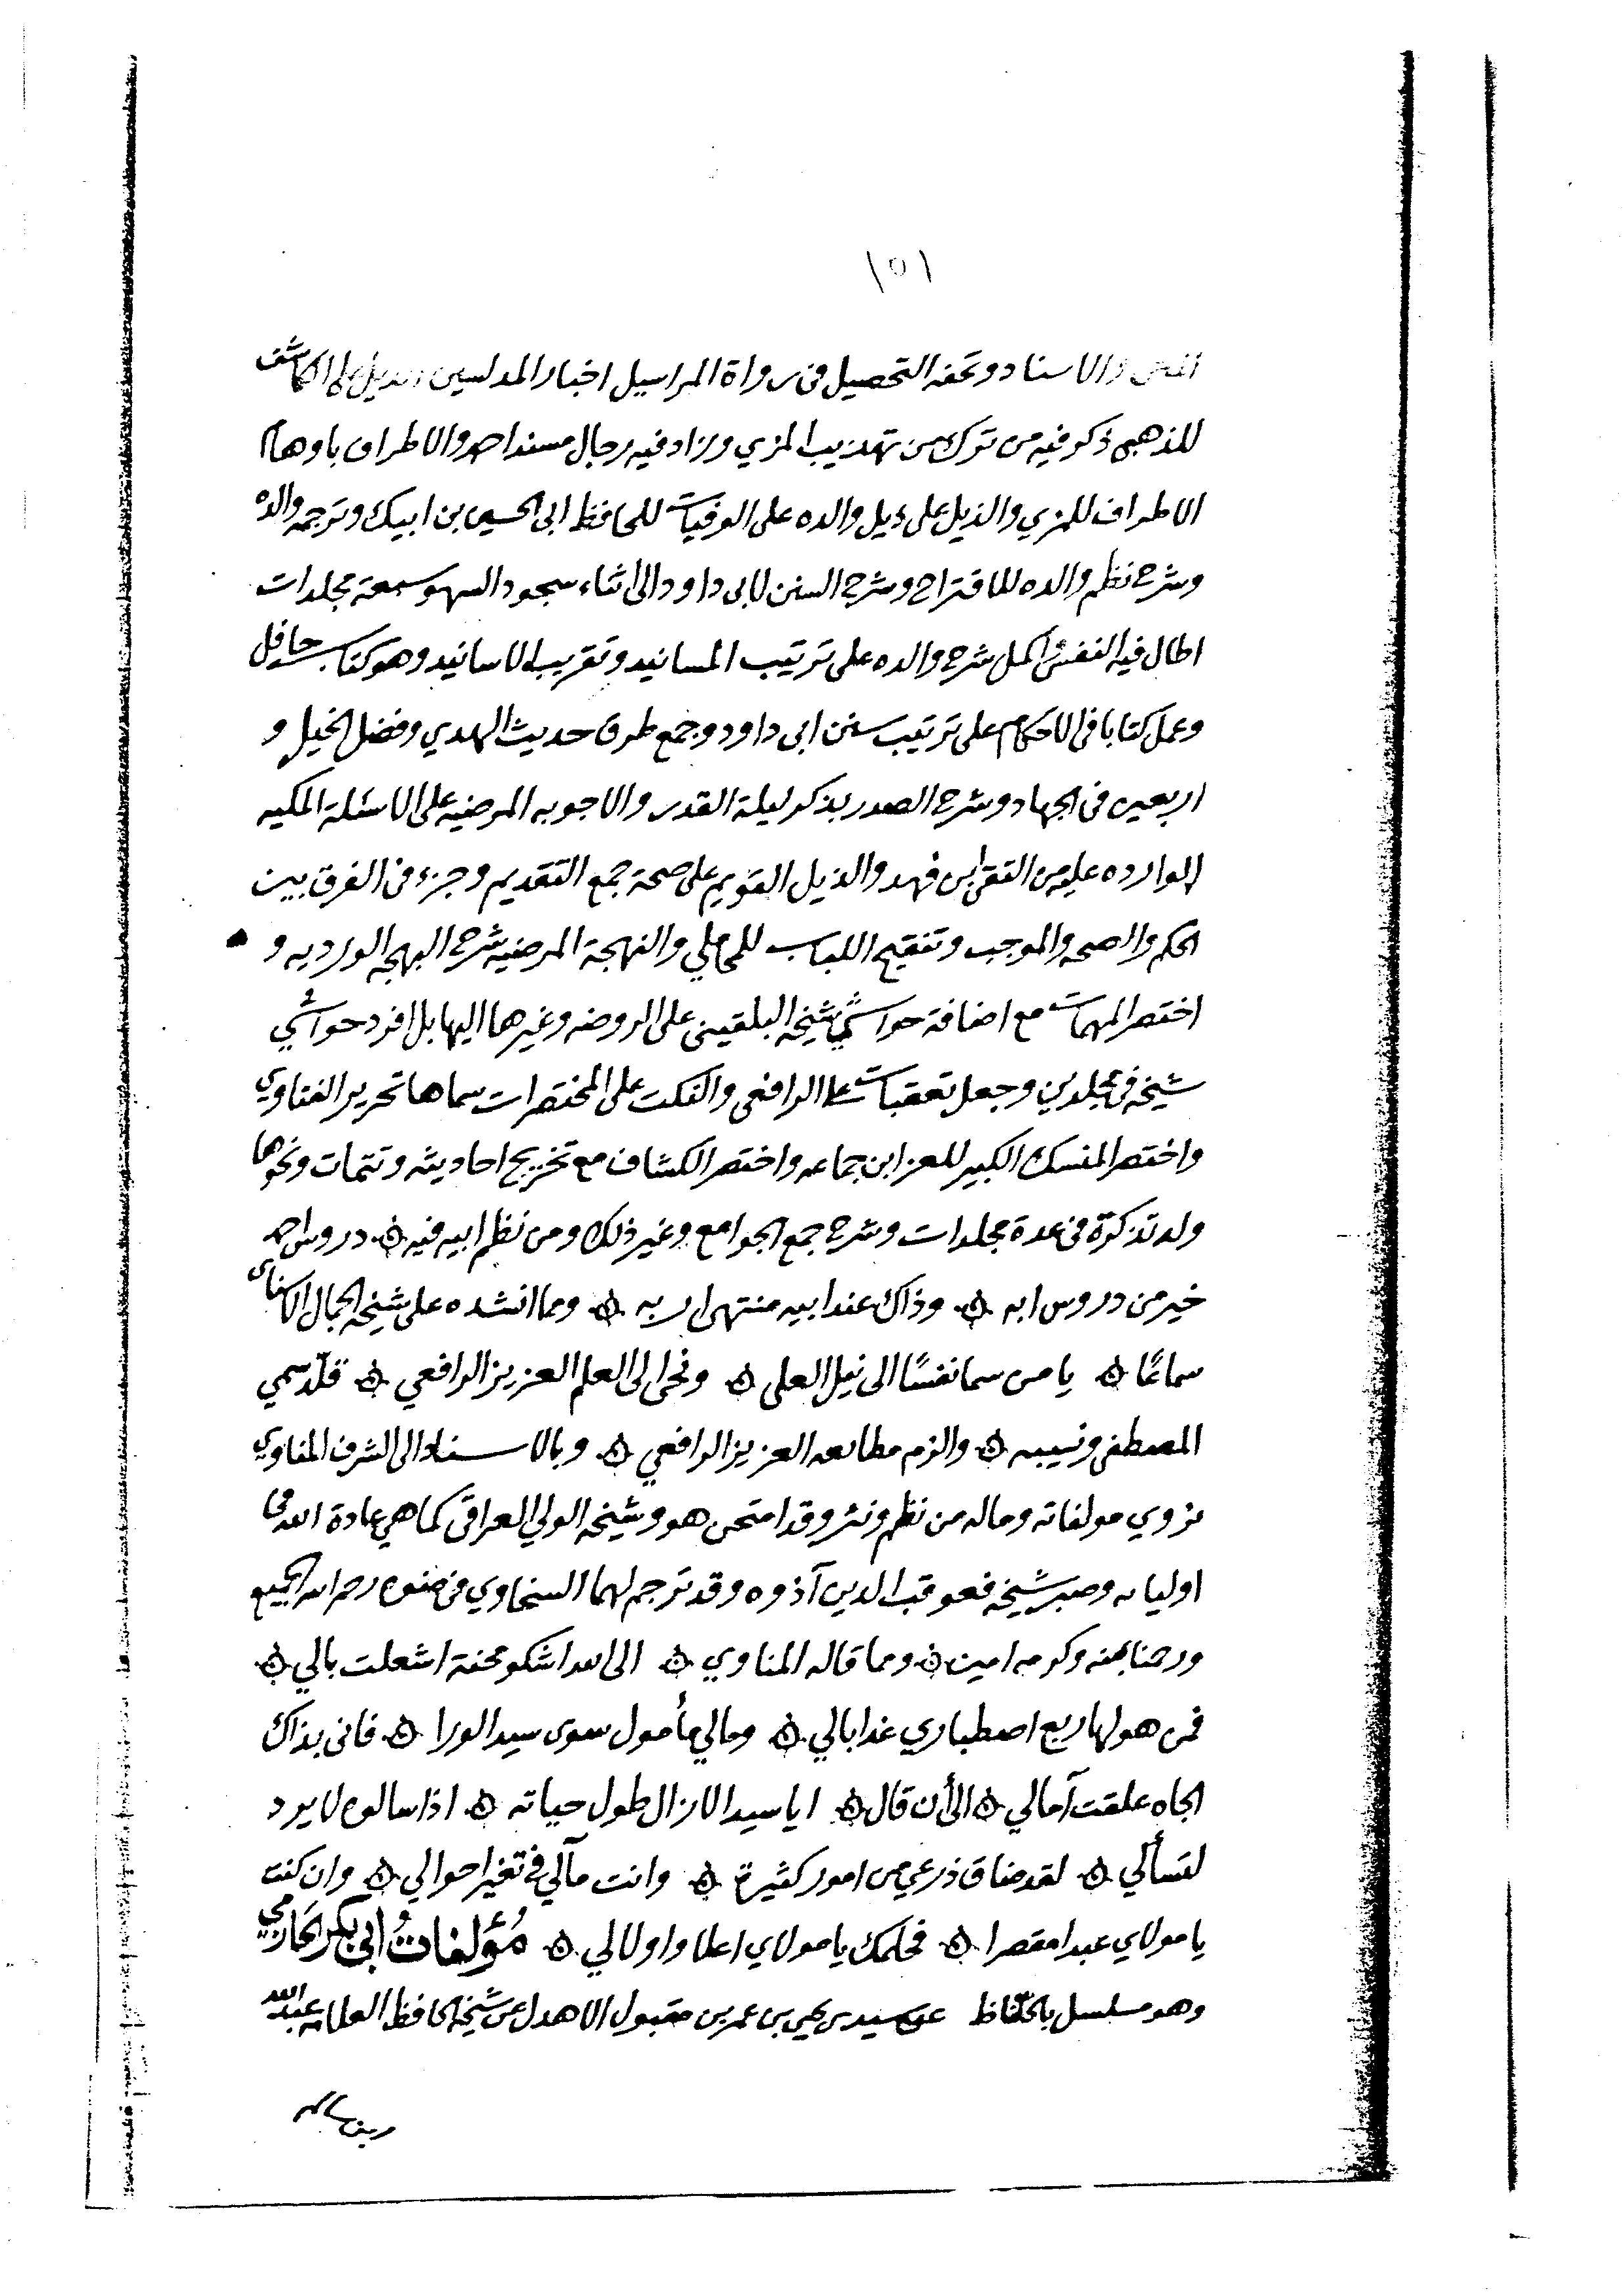 ١٥١
المتن والاسناد وتحفه التحصيل فى رواة المراسيل اخبار المدلسين الذيل على الكاشف
للذهبى ذكر فيه من ترك من تهذيب المزي وزاد فيه رجال مسند احمد والاطراف باوهام
الاطراف للمزي والذيل على ذيل والده على الوفيات للحافظ ابى الحسين بن ابيك وترجمه والده
وشرح نظم والده للاقتراح وشرح السنن لابى داود الى اثناء سجود السهو سبعة مجلدات
اطال فيه النفس ثم اكمل شرح والده على ترتيب المسانيد وتقريب الاسانيد وهو كتاب حافل
وعمل كتابا فى الاحكام على ترتيب سنن ابى داود وجمع طرق حديث المهدي وفضل الخيل و
اربعين فى الجهاد وشرح الصدر بذكر ليلة القدر والاجوبه المرضيه على الاسئلة المكيه
الوارده عليه من التقى ابن فهد والذيل القويم على صحة جمع التقديم وجزء فى الفرق بين
الحكم والصحه والموجب وتنقيح اللباب للمحاملي والنهجة المرضيه شرح البهجه الورديه و
اختصر المهمات مع اضافة حواشي شيخه البلقينى على الروضه وغيرها اليها بل افرد حواشي
شيخه فى مجلدين وجعل تعقبات على الرافعى والنكت على المختصرات سماها تحرير الفتاوي
واختصر المنسك الكبير للعز ابن جماعه واختصر الكشاف مع تخريج احاديثه وتتمات ونحوها
وله تذكرة فى عدة مجلدات وشرح جمع الجوامع وغير ذلك ومن نظم ابيه فيه ۞ دروس احمد
خير من دروس ابه ۞ وذاك عند ابيه منتهى اربه ۞ ومما انشده على شيخه الجمال الاسنائى
سماعًا ۞ يا من سما نفسًا الى نيل العلى ۞ ونحى الى العلم العزيز الرافعي ۞ قلّد سمي
المصطفى ونسيبه ۞ والزم مطالعه العزيز الرافعي ۞ وبالاسناد الى الشرف المناوي
نروي مولفاته وماله من نظم ونثر وقد امتحن هو وشيخه الولي العراقى كما هي عادة الله فى
اوليائه وصبر شيخه فعوقب الذين آذوه وقد ترجم لهما السخاوي فى ضوءه رحم الله الجميع
ورحمنا بمنه وكرمه امين ۞ ومما قاله المناوي ۞ الى الله اشكو محنة اشعلت بالي ۞
فمن هولها ربع اصطباري غدا بالي ۞ ومالي مأمول سوى سيد الورا ۞ فانى بذاك
الجاه علقت آمالي ۞ الى أن قال ۞ ايا سيدا لازال طول حياته ۞ اذا سالوه لا يرد
لتسألي ۞ لقد ضاق ذرعي من امور كثيرة ۞ وانت مآلي فى تغير احوالي ۞ وان كنت
يا مولاي عبدا مقصرا ۞ فحلمك يا مولاي اعلا واولا لي ۞ مُؤلفاتُ ابى بكر الحازمي
وهو مسلسل بالحفّاظ عن سيدي يحيى بن عمر بن مقبول الاهدل عن شيخه الحافظ العلامه عبد الله
بن سالم